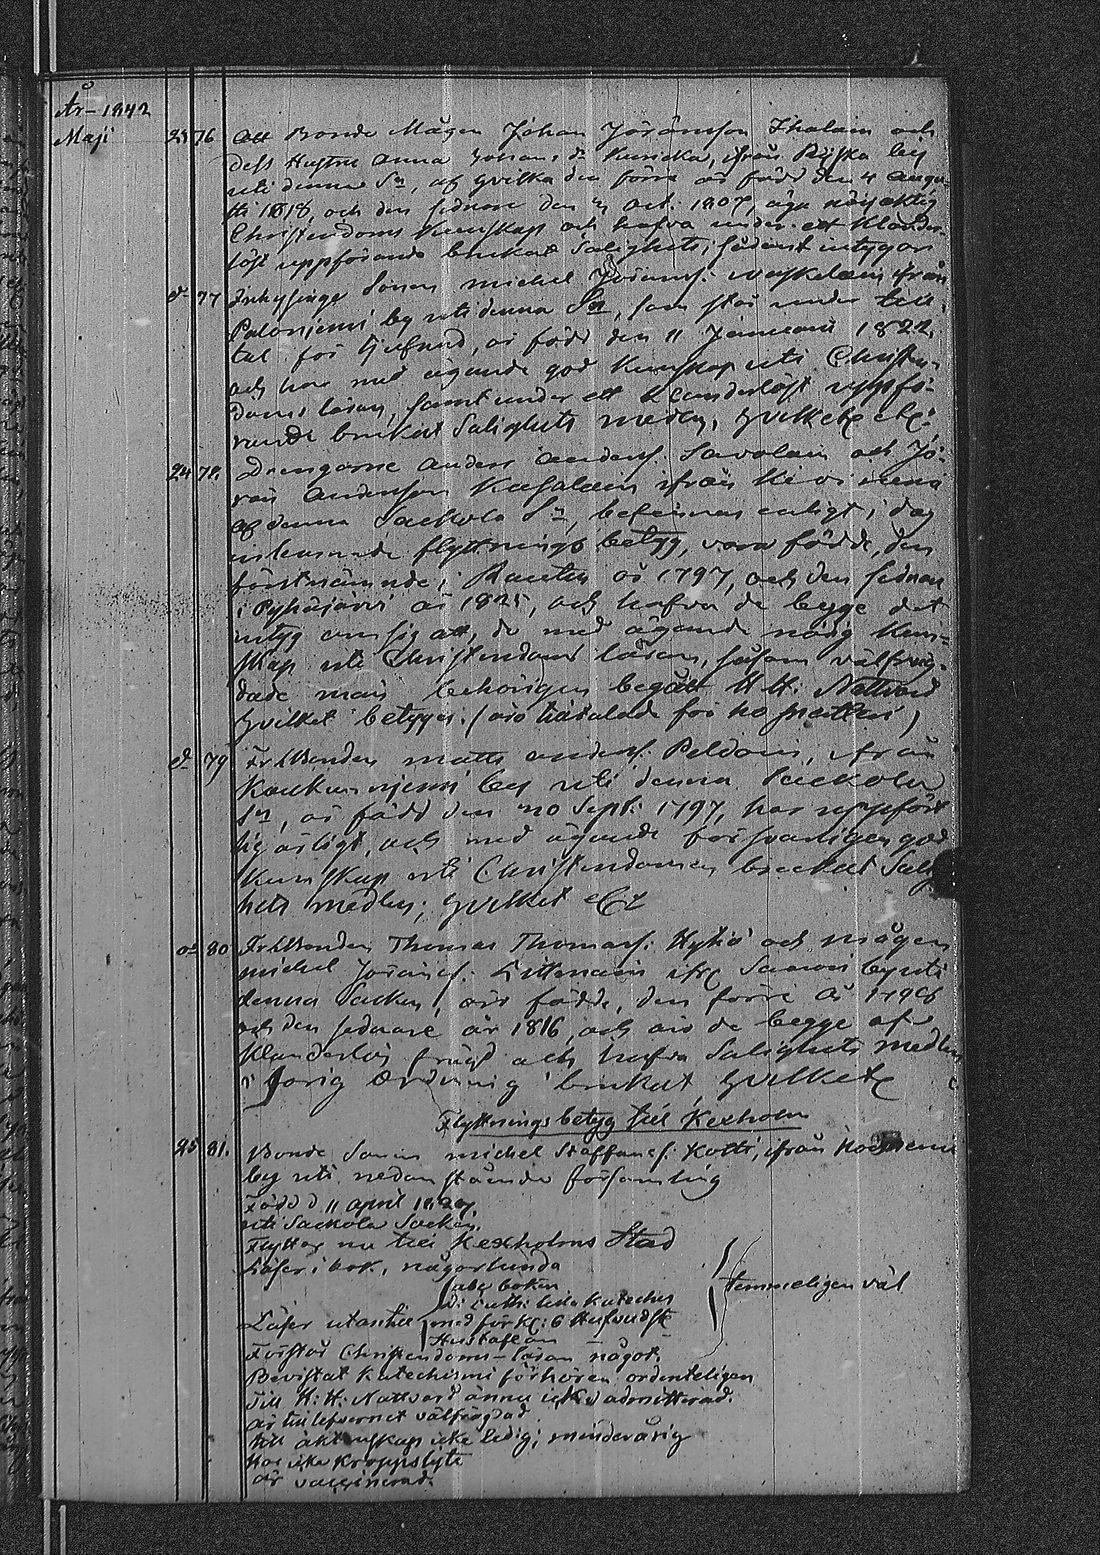 År 1842
Maji 23 76 att Bonde Mågen Johan Jöransson Ihalain och
dess Hustru Anna Johans dr Kunicka, ifrån Riiska by
uti denna Sn, af hvilka den förre är född den 4 Augu-
sti 1818, och den sednare den 4 Oct. 1807, äga nöjaktig
Christendoms kunskap och hafva under ett klander-
löst uppförande brukat Salighets; sådant intygar
d- 77 Inhysinge Sonen Michel Jöransf: ifrån
Palonjemi by uti denna Sn, som står under till-
tal för tjufnad, är född den 11 Januarii 1822
och har med ägande god kunskap uti Christen-
doms läran, samt under ett klanderlöst uppfö-
rande brukat Salighets medlen, hvilket etc:
24 78. Drengarne Anders Andersf. Savolain och Jö-
ran Andersson Kasalain ifrån
af denna Sackola Sn, befinnas enligt i dag
flyttnings betyg, vara födde, den
förstnämnde i Rautus år 1797, och den sednare
i Pyhäjärvi år 1825, och hafva de begge det
intyg om sig att, de med ägande nöjig kun-
skap uti Christendoms läran, såsom välfräj-
dade män behörigen begått H. H. Nattvard
hvilket betygas. (äro
d- 79 Fr. Bonden Matts Andersf. Peldoin, ifrån
by uti denna Sackola
Sn, är född den 20 Sept. 1797, har uppfört
sig ärligt, och med ägande försvarligen god
kunskap uti Christendomen brukat Salig-
hets medlen; hvilket etc
d- 80 Fr. Bonden Thomas Thomasf: Hyhiö och mågen
Michel Jöransf. ifr Sammi by uti
denna Socken, äro födde, den förre år 1798
och den sednare år 1816, och äro de begge af
klanderlös fräjd och hafva Salighets medlen
i ordning brukat hvilket
Flyttningsbetyg till Kexholm
25 81. Bonde Sonen Michel Staffansf. Kotti, ifrån
by uti nedanstående församling
Född d 11 April 1827,
uti Sackola Socken.
Flyttar nu till Kexholms Stad
Läser i bok, någorlunda
abc boken
D: Luth: lilla Kateches
Läser utantill med förkl: 6 Hufvudst
Hustaflan
temmeligen väl
Förstår Christendoms-läran något.
Bevistat Katechismi förhören ordenteligen
Till H. H. Nattvard ännu icke admitterad.
är till lefvernet välfräjdad
till äktenskap icke ledig; minderårig
Har icke kroppslyte
är vaccinerad.